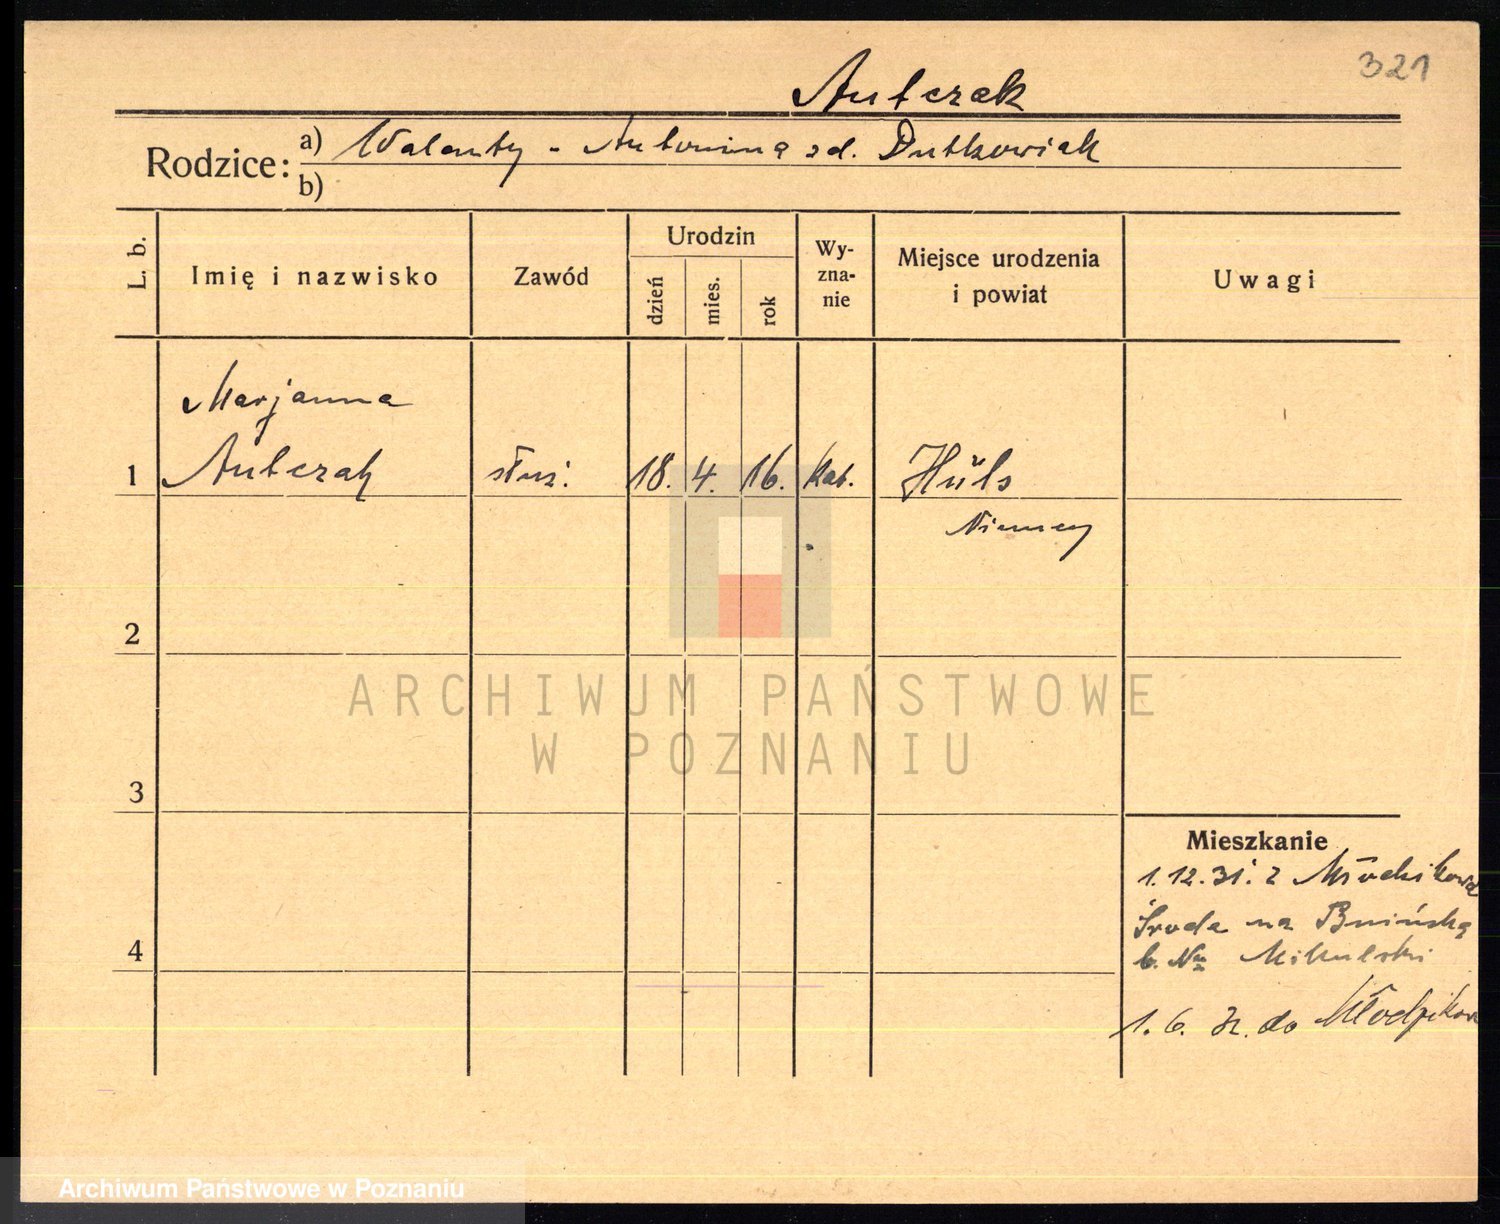 321
Antczak
Rodzice: a) Walenty - Antonina zd. Dutkowiak
b)
L. b.
Imię i nazwisko
Zawód
Urodzin
dzień
mies.
rok
Wy-
zna-
nie
Miejsce urodzenia
i powiat
Uwagi
Marjanna
1 Antczak służ. 18. 4. 16. kat. Hüls
Niemcy
2
3
4
Mieszkanie
1.12.31. z
Środa na Bnińską
b. Mikulski
1. 6. 32. do Włodzikow
ARCHIWUM PAŃSTWOWE
W POZNANIU
Archiwum Państwowe w Poznaniu